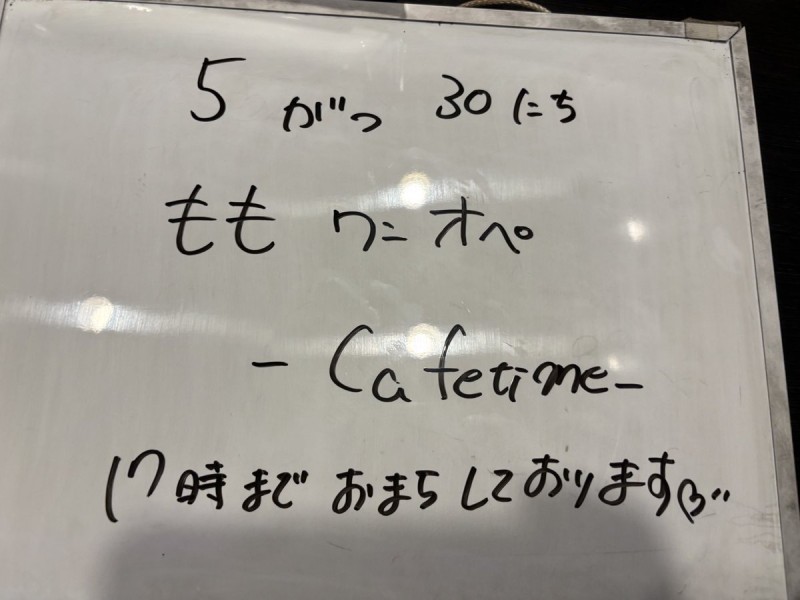 5 がつ 30 にち
もも ワニ オペ
- Cafetime -
17時まで おまちしております